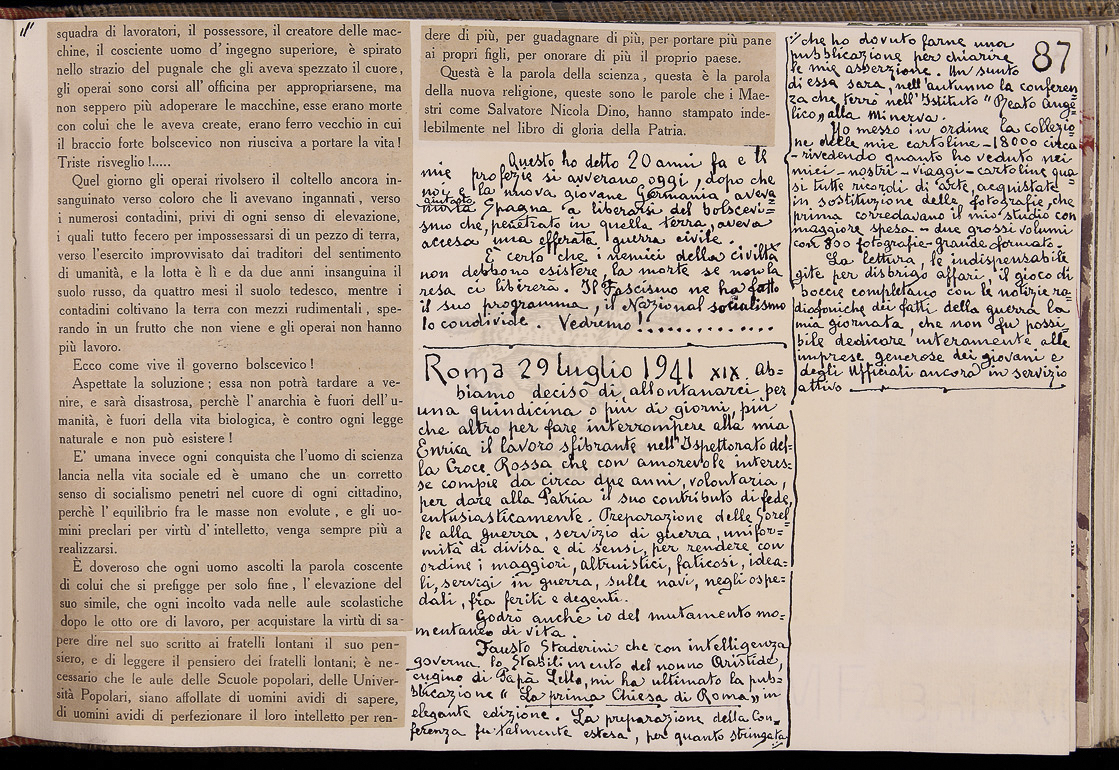 squadra di lavoratori, il possessore, il creatore delle mac-
chine, il cosciente uomo d'ingegno superiore, è spirato
nello strazio del pugnale che gli aveva spezzato il cuore,
gli operai sono corsi all' officina per appropriarsene, ma
non seppero più adoperare le macchine, esse erano morte
con colui che le aveva create, erano ferro vecchio in cui
il braccio forte bolscevico non riusciva a portare la vita!
Triste risveglio !.....
Quel giorno gli operai rivolsero il coltello ancora in-
sanguinato verso coloro che li avevano ingannati, verso
i numerosi contadini, privi di ogni senso di elevazione,
i quali tutto fecero per impossessarsi di un pezzo di terra,
verso l'esercito improvvisato dai traditori del sentimento
di umanità, e la lotta è lì e da due anni insanguina il
suolo russo, da quattro mesi il suolo tedesco, mentre i
contadini coltivano la terra con mezzi rudimentali, spe-
rando in un frutto che non viene e gli operai non hanno
più lavoro.
Ecco come vive il governo bolscevico !
Aspettate la soluzione; essa non potrà tardare a ve-
nire, e sarà disastrosa, perchè l' anarchia è fuori dell'u-
manità, è fuori della vita biologica, è contro ogni legge
naturale e non può esistere !
E' umana invece ogni conquista che l'uomo di scienza
lancia nella vita sociale ed è umano che un corretto
senso di socialismo penetri nel cuore di ogni cittadino,
perchè l' equilibrio fra le masse non evolute, e gli uo-
mini preclari per virtù d' intelletto, venga sempre più a
realizzarsi.
È doveroso che ogni uomo ascolti la parola coscente
di colui che si prefigge per solo fine, l' elevazione del
suo simile, che ogni incolto vada nelle aule scolastiche
dopo le otto ore di lavoro, per acquistare la virtù di sa-
pere dire nel suo scritto ai fratelli lontani il suo pen-
siero, e di leggere il pensiero dei fratelli lontani; è ne-
cessario che le aule delle Scuole popolari, delle Univer-
sità Popolari, siano affollate di uomini avidi di sapere,
di uomini avidi di perfezionare il loro intelletto per ren-
dere di più, per guadagnare di più, per portare più pane
ai propri figli, per onorare di più il proprio paese.
Questà è la parola della scienza, questa è la parola
della nuova religione, queste sono le parole che i Mae-
stri come Salvatore Nicola Dino, hanno stampato inde-
lebilmente nel libro di gloria della Patria.
Questo ho detto 20 anni fa e le
mie profezie si avverano oggi, dopo che
noi e la nuova giovane Germania aveva
aiutato
Spagna a liberarsi del bolscevi-
smo che, penetrato in quella terra, aveva
accesa una efferata guerra civile . .
È certo che i nemici della civiltà
non debbono esistere, la morte se non la
resa ci libererà. Il Fascismo ne ha fatto
il suo programma, il Nazional socialismo
lo condivide. Vedremo !..............
Roma 29 luglio 1941 XIX. Ab-
biamo deciso di allontanarci per
una quindicina o più di giorni, più
che altro per fare interrompere alla mia
Enrica il lavoro sfibrante nell'Ispettorato del-
la Croce Rossa che con amorevole interes-
se compie da circa due anni, volontaria,
per dare alla Patria il suo contributo di fede,
entusiasticamente. Preparazione delle Sorel-
le alla guerra, servizio di guerra, unifor-
mità di divisa e di sensi, per rendere con
ordine i maggiori, altruistici, faticosi, idea-
li, servigi in guerra, sulle navi, negli ospe-
dali, fra feriti e degenti.
Godrò anche io del mutamento mo-
mentaneo di vita.
Fausto Staderini che con intelligenza
governa lo Stabilimento del nonno Aristide,
cugino di Papà Lello, mi ha ultimato la pub-
blicazione " La prima Chiesa di Roma „ in
elegante edizione. La preparazione della Con-
ferenza fu talmente estesa, per quanto stringata
87
che ho dovuto farne una
pubblicazione per chiarire
le mie asserzione. Un sunto
di essa sarà, nell'autunno la conferen
za che terrò nell'Istituto "Beato Ange-
lico„ alla Minerva.
Ho messo in ordine la collezio
ne delle mie cartoline - 18000 circa
- rivedendo quanto ho veduto nei
miei - nostri - viaggi - cartoline qua-
si tutte ricordi di arte, acquistate
in sostituzione delle fotografie, che
prima corredavano il mio studio con
maggiore spesa - due grossi volumi
con 800 fotografie - grande formato -
La lettura, le indispensabile
gite per disbrigo affari, il gioco di
boccie completano con le notizie ra-
diofoniche dei fatti della guerra la
mia giornata, che non fu possi-
bile dedicare interamente alle
imprese generose dei giovani e
degli Ufficiali ancora in servizio
attivo